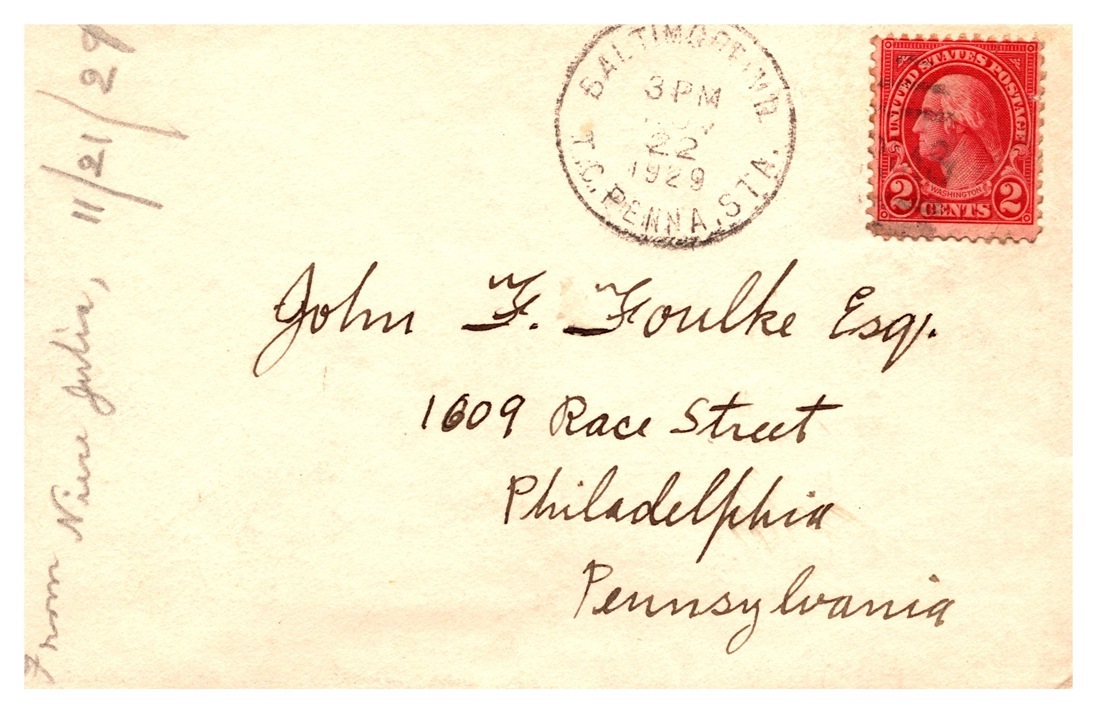 BALTIMORE, MD.
3 PM
NOV
22
1929
T.C. PENNA. STA.
UNITED STATES POSTAGE
WASHINGTON
2 CENTS 2
John F. Foulke Esq.
1609 Race Street
Philadelphia
Pennsylvania
From Niece Julia, 11/21/29